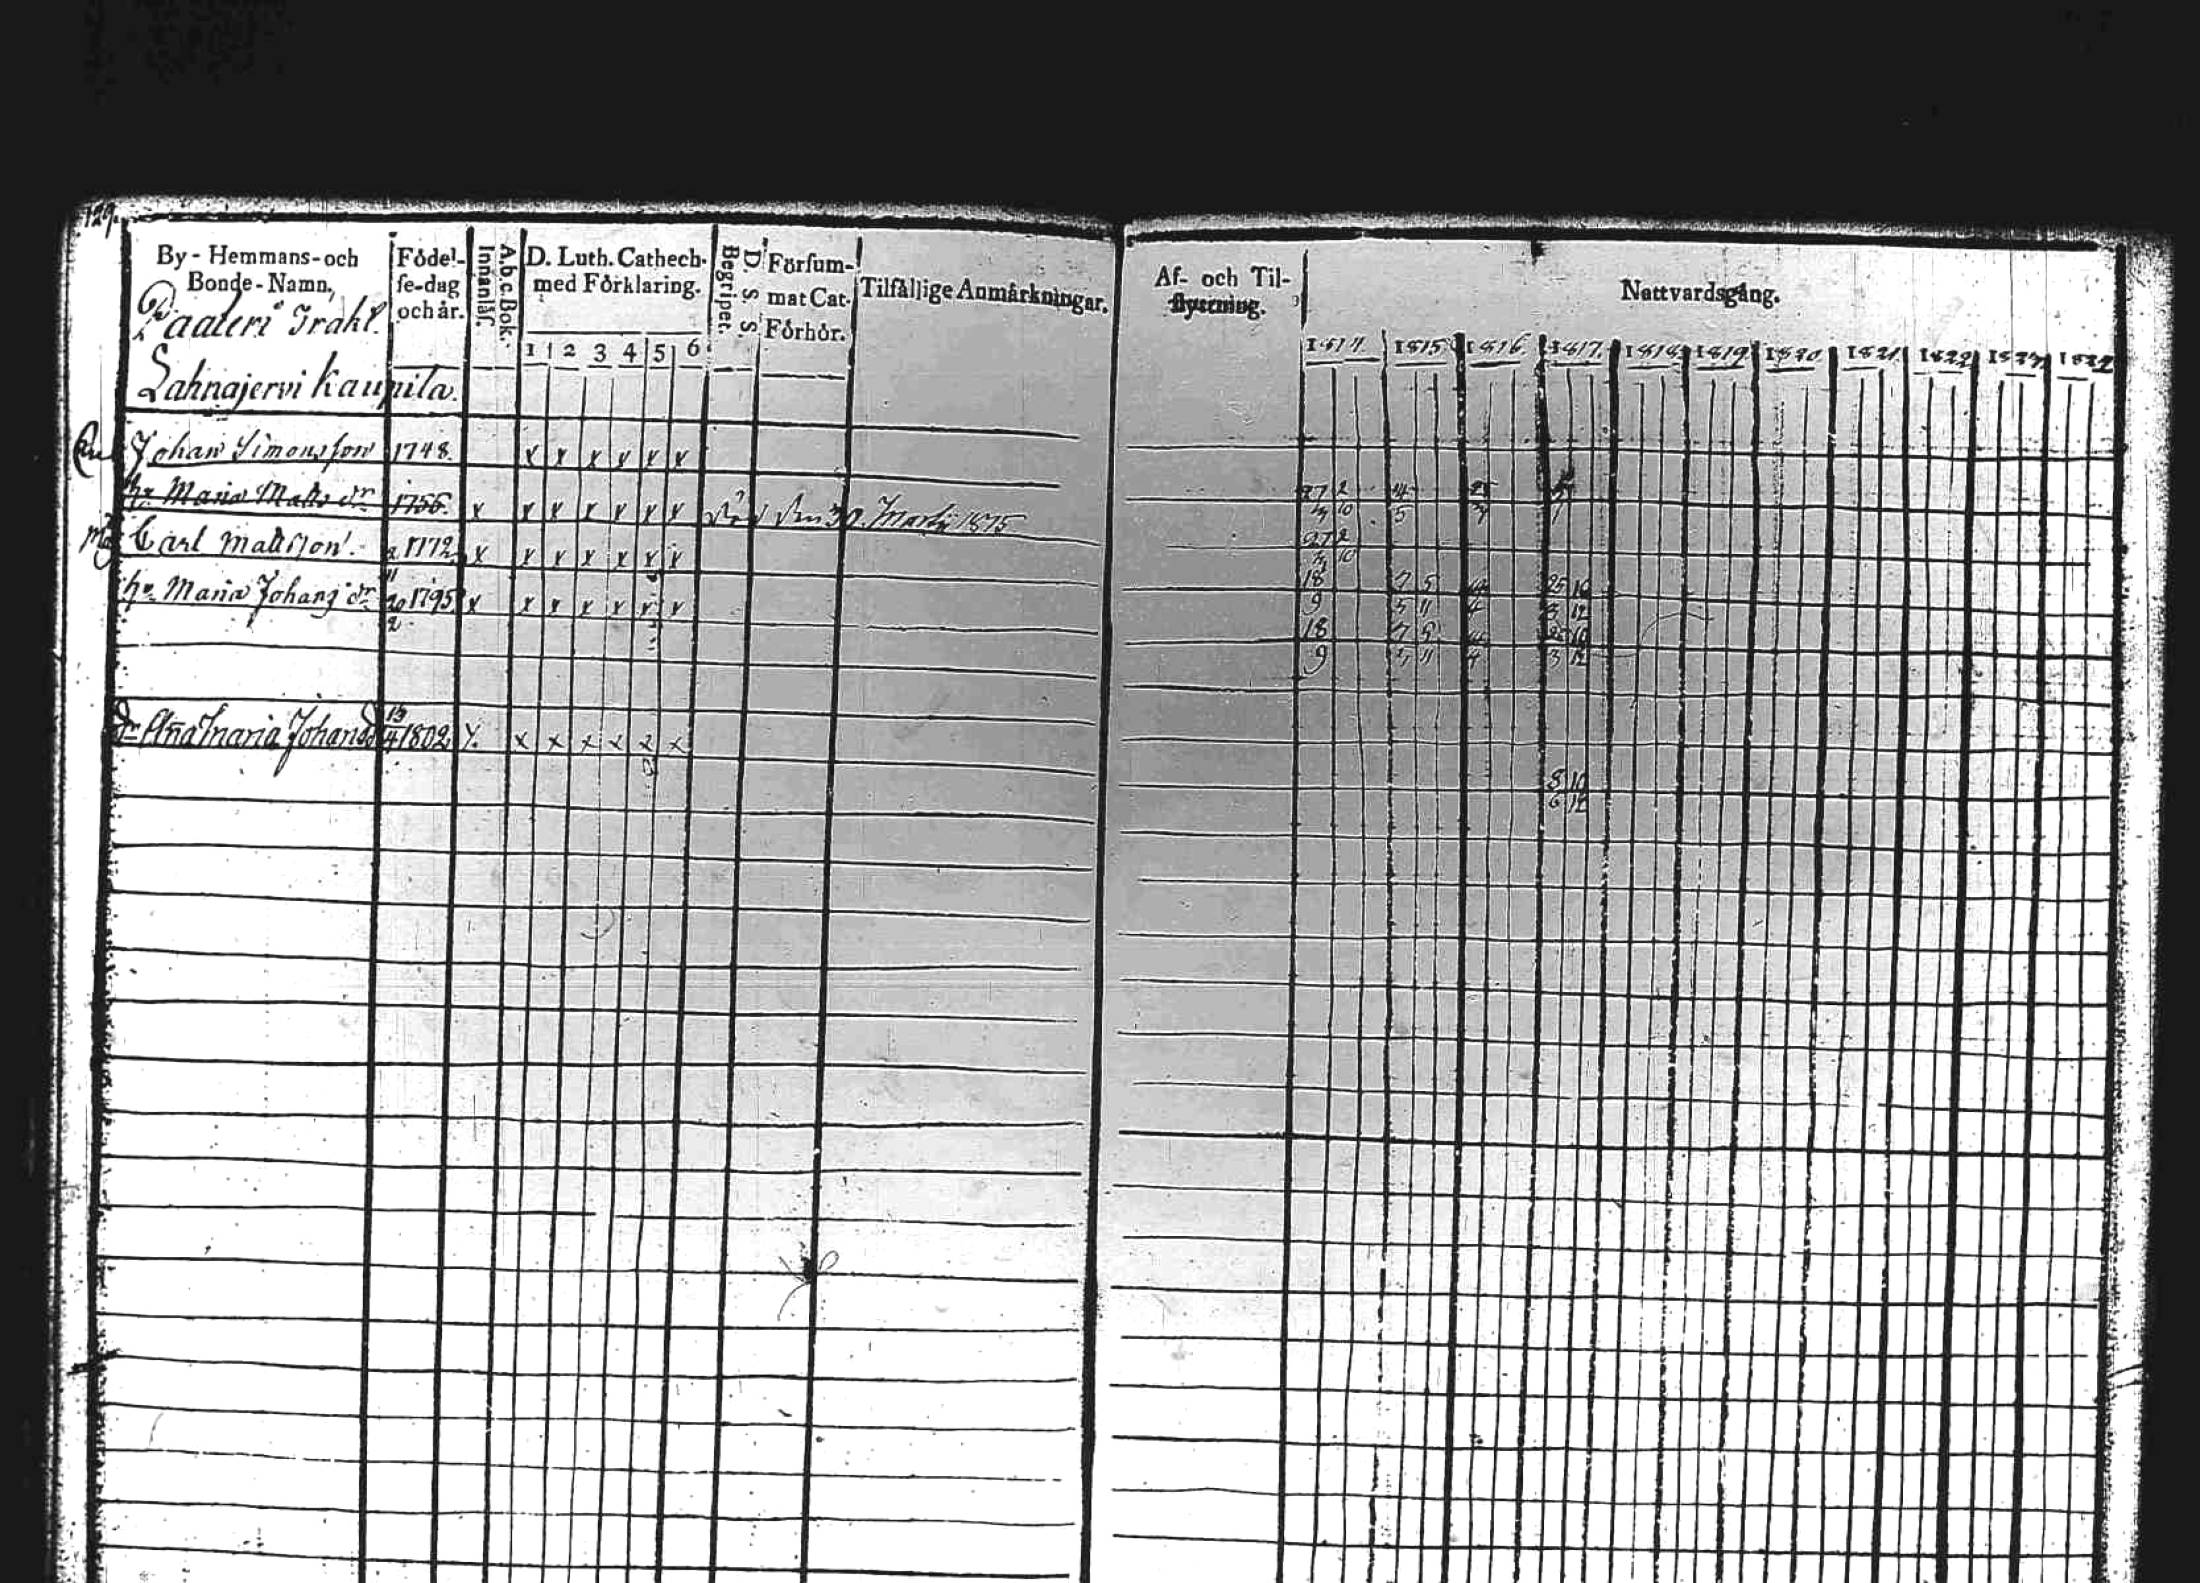 129.
By - Hemmans - och Bonde - Namn,
Födel-
se-dag
och år.
Innanläs.
A.b.c. Bok.
D. Luth. Cathech.
med Förklaring.
1 2 3 4 5 6
Begripet.
D. S. S.
Försum-
mat Cat.
Förhör.
Tilfällige Anmärkningar.
Af- och Til-
flyttning.
Nattvardsgång.
1814 1815 1816 1817. 1818. 1819. 1820. 1821. 1822 1823 1824
Lahnajervi Kaupila.
Johan Simonsson 1748. x x x x x x
hu Maria Matts dr 1756. x x x x x x x död den 30. Martii 1815
27 2 4 25
4 10 5
Carl Mattsson. 1772 x x x x x x x
27 2
10
11
hu Maria Johans dr 20 1795 x x x x x x x
2
18 7 5 25 10
9 11 4 3 12
18 7 5 10
9 11 4 3 12
dr Aña Maria Johans d 13 1802 x. x x x x x x
4
8 10
6 12